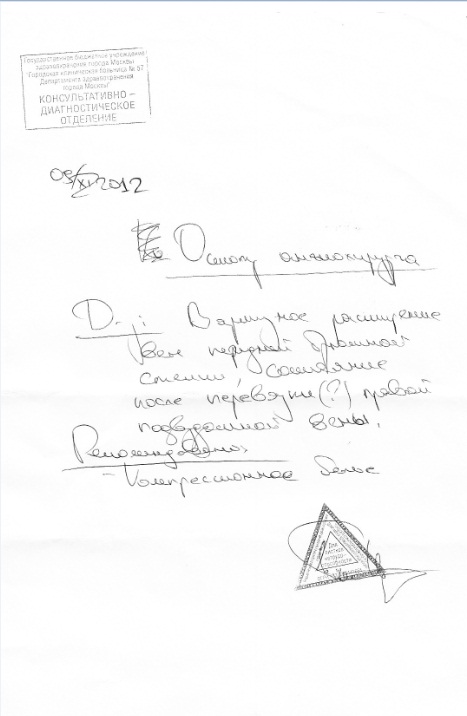 Государственное бюджетное учреждение
здравоохранения города Москвы
"Городская клиническая больница № 57
Департамента здравоохранения
города Москвы"
КОНСУЛЬТАТИВНО –
ДИАГНОСТИЧЕСКОЕ
ОТДЕЛЕНИЕ
09/XI 2012
Осмотр ангиохирурга
D-з: Варикозное расширение
вен передней брюшной
стенки, состояние
после перевязки (?) правой
подвздошной вены.
Рекомендовано:
- Компрессионное белье
Для